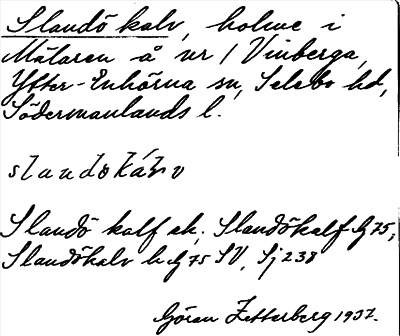 Slandö kalv, holme i
Mälaren å nr 1 Vinberga,
Ytter-Enhörna sn, Selebo hd,
Södermanlands l.
slandökálv
Slandö kalf ek, Slandökalf G 75;
Slandökalv h G 75 SV, Sj 238
Göran Zetterberg 1937.